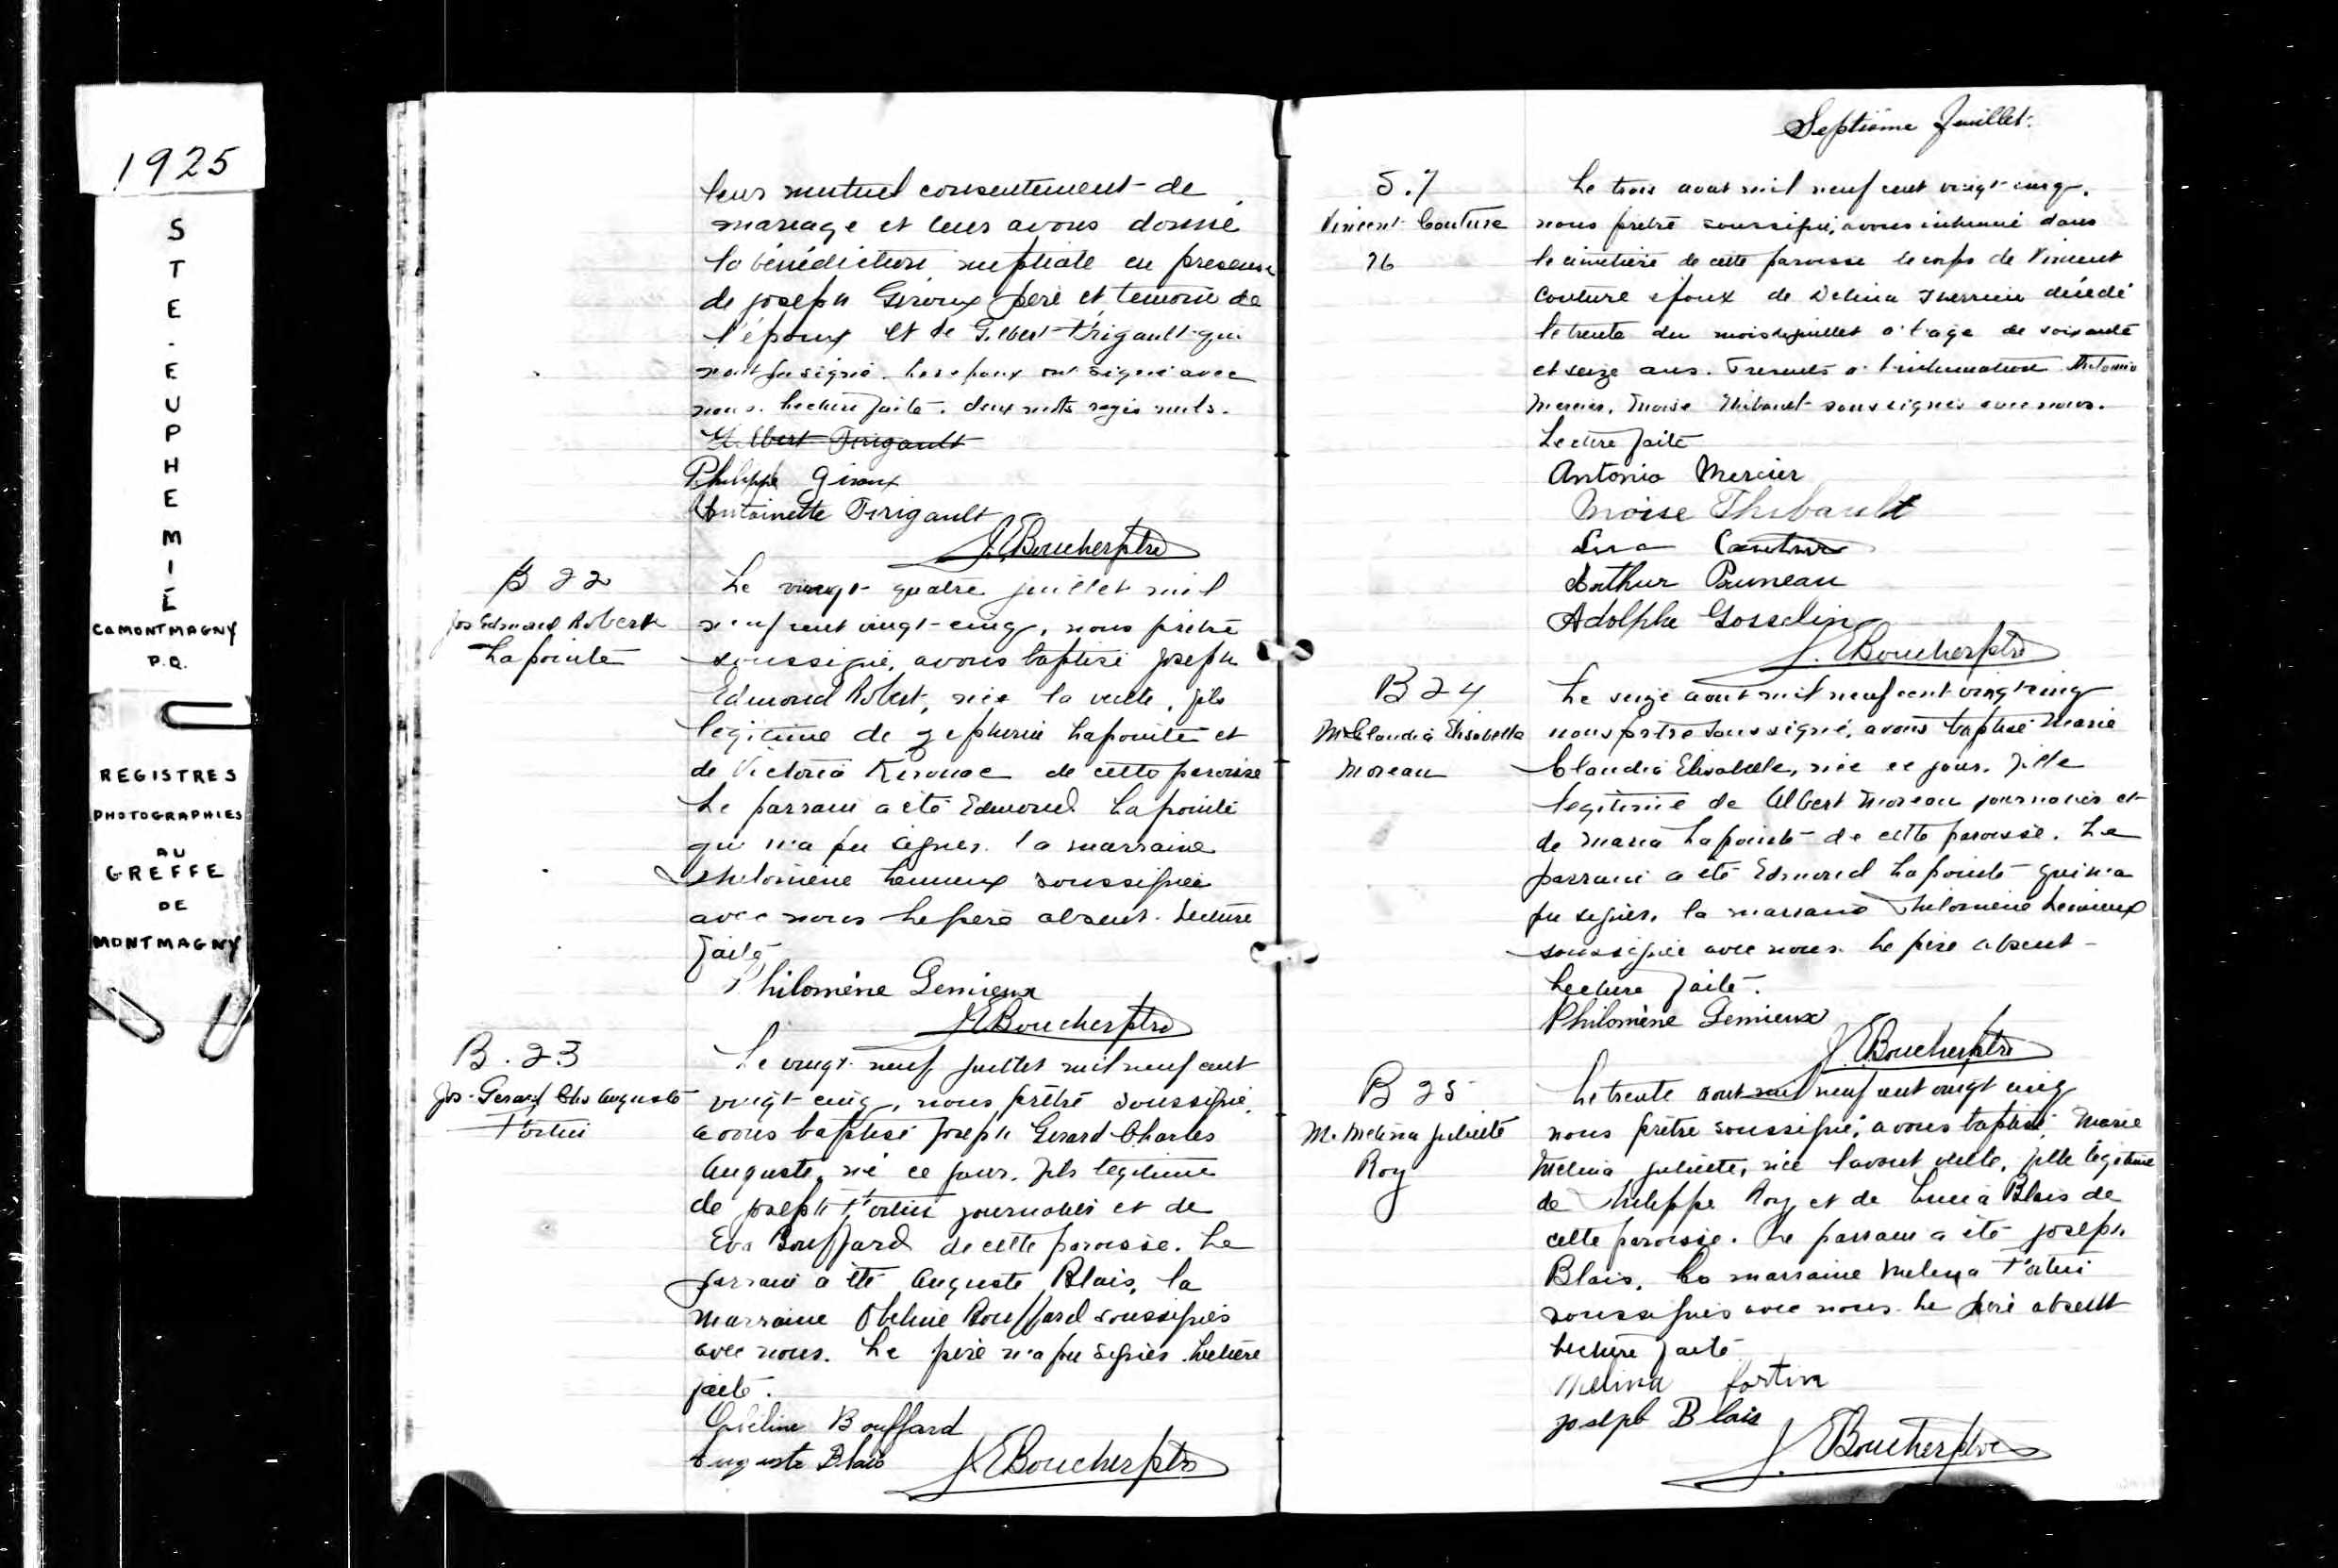 1925
STE-EUPHEMIÉ
CO MONTMAGNY
P.Q.
REGISTRES
PHOTOGRAPHIES
AU
GREFFE
DE
MONTMAGNY
leur mutuel consentement de
mariage et leur avons donné
la bénédiction nuptiale en presence
de joseph Giroux père et temoin de
l'époux et de Gilbert Trigault qui
n'ont pu signé. Les epoux ont signé avec
nous. Lecture faite. deux mots rayés nuls.
Gilbert Firigault
Philippe Giroux
Antoinette Firigault
J. E Boucher ptre
B 22
Jos Edmond Robert
Lapointe
Le vingt-quatre juillet mil
neuf cent vingt-cinq, nous prêtre
soussigné, avons baptisé Joseph
Edmond Robert, né la veille, fils
légitime de Zepherin Lapointe et
de Victoria Kirouac de cette paroisse
Le parrain a été Edmond Lapointe
qui n'a pu signer. la marraine
Philomène Lemieux soussignée
avec nous Le père absent. Lecture
faite
Philomène Lemieux
J E Boucher ptre
B. 23
Jos-Gerard Chs Auguste
Fortin
Le vingt-neuf juillet mil neuf cent
vingt-cinq, nous prêtre soussigné,
avons baptisé Joseph Gerard Charles
Auguste, né ce jour, fils legitime
de Joseph Fortin journalier et de
Eva Bouffard de cette paroisse. Le
parrain a été Auguste Blais, la
marraine Obeline Bouffard soussignés
avec nous. Le père n'a pu signer. Lecture
faite.
Bouffard
Auguste Blais
J. E Boucher ptre
Septième Feuillet.
S. 7
Vincent Couture
76
Le trois aout mil neuf cent vingt-cinq,
nous prêtre soussigné, avons inhumé dans
le cimetière de cette paroisse le corps de Vincent
Couture époux de Delina Therrien décédé
le trente du mois de juillet a l'age de soixante
et seize ans. Presents a l'inhumation Antonio
Mercier, Moise Thibault soussignés avec nous.
Lecture faite
Antonio Mercier
Moise Thibault
Couture
Arthur Pruneau
Adolphe Gosselin
J. E Boucher ptre
B 24
M Claudia Elisabelle
Moreau
Le seize aout mil neuf cent vingt-cinq
nous prtre soussigné, avons baptisé Marie
Claudia Elisabelle, née ce jour, fille
legitime de Albert Moreau journalier et
de Maria Lapointe de cette paroisse. Le
parrain a été Edmond Lapointe qui n'a
pu signer, la marraine Philomène Lemieux
soussignée avec nous. Le père absent-
Lecture faite.
Philomène Lemieux
J. E Boucher ptre
B 25
M. Melina Juliette
Roy
Le trente aout mil neuf cent vingt cinq
nous prêtre soussigné, avons baptisé, Marie
Melina Juliette, née l'avant veille, fille légitime
de Philippe Roy et de Blais de
cette paroisse. Le parrain a été joseph
Blais, La marraine Melina Fortin
soussignés avec nous. Le père absent
Lecture faite
Melina fortin
joseph Blais
J. E Boucher ptre